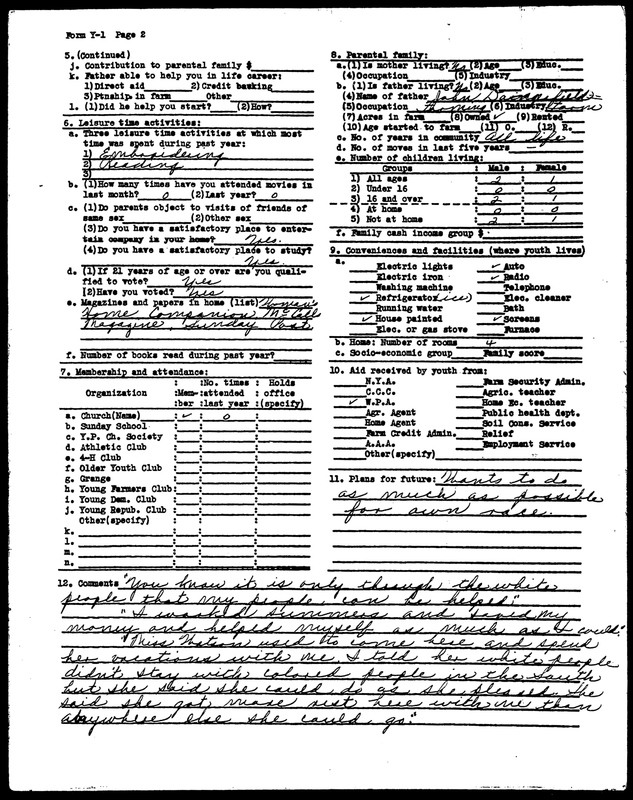 Form Y-1 Page 2
5. (Continued)
j. Contribution to parental family $
k. Father able to help you in life career:
1)Direct aid 2)Credit banking
3)Ptnship in farm Other
l. (1)Did he help you start? (2)How?
6. Leisure time activities:
a. Three leisure time activities at which most
time was spent during past year:
1) Embroidering
2) Reading
3)
b. (1)How many times have you attended movies in
last month? 0 (2)Last year? 0
c. (1)Do parents object to visits of friends of
same sex (2)Other sex
(3)Do you have a satisfactory place to enter-
tain company in your home? Yes.
(4)Do you have a satisfactory place to study?
Yes.
d. (1)If 21 years of age or over are you quali-
fied to vote? Yes
(2)Have you voted? Yes
e. Magazines and papers in home (list) Woman's
Home Companion, McCall
Magazine, Sunday Post
f. Number of books read during past year?
7. Membership and attendance:
Organization :Mem-ber :No. times attended last year : Holds office (specify)
a. Church(Name) ✓ 0
b. Sunday School
c. Y.P. Ch. Society
d. Athletic Club
e. 4-H Club
f. Older Youth Club
g. Grange
h. Young Farmers Club
i. Young Dem. Club
j. Young Repub. Club
Other(specify)
k.
l.
m.
n.
8. Parental family:
a.(1)Is mother living? (2)Age (3)Educ.
(4)Occupation (5)Industry
b. (1)Is father living? (2)Age (3)Educ.
(4)Name of father John
(5)Occupation Farming (6)Industry Farm
(7)Acres in farm (8)Owned ✓ (9)Rented
(10)Age started to farm (11) O. (12) R.
c. No. of years in community All life
d. No. of moves in last five years –
e. Number of children living:
Groups : Male : Female
1) All ages : 2 : 1
2) Under 16 : 0 : 0
3) 16 and over : 2 : 1
4) At home : 0 : 0
5) Not at home : 2 : 1
f. Family cash income group $
9. Conveniences and facilities (where youth lives)
a.
Electric lights ✓ Auto
Electric iron ✓ Radio
Washing machine Telephone
✓ Refrigerator (ice) Elec. cleaner
Running water Bath
✓ House painted ✓ Screens
Elec. or gas stove Furnace
b. Home: Number of rooms 4
c. Socio-economic group Family score
10. Aid received by youth from:
N.Y.A. Farm Security Admin.
C.C.C. Agric. teacher
✓ W.P.A. Home Ec. teacher
Agr. Agent Public health dept.
Home Agent Soil Cons. Service
Farm Credit Admin. Relief
A.A.A. Employment Service
Other(specify)
11. Plans for future: Wants to do
as much as possible
for own race.
12. Comments "You know it is only through the white
people that my people can be helped."
"I worked summers and saved my
money and helped myself as much as I could."
"Miss Watson used to come here and spend
her vacations with me I told her white people
didn't stay with colored people in the South
but she said she could do as she pleased. She
said she got more rest here with me than
anywhere else she could go."